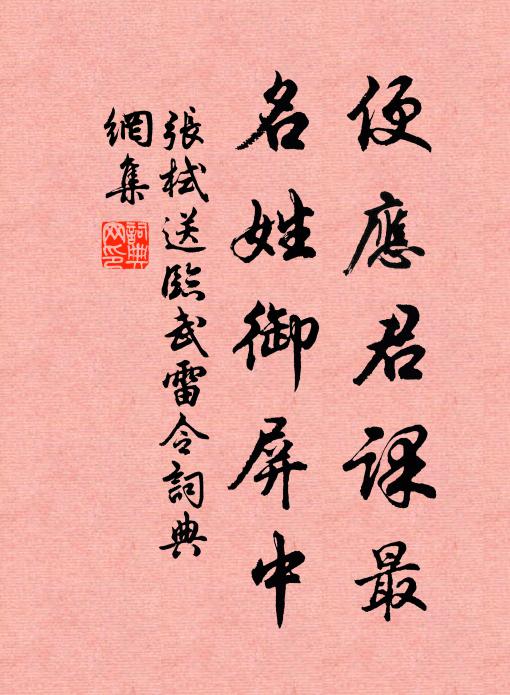 便應君課最
名姓御屏中
張栻送臨武雷令詞典
網集
詞典網印